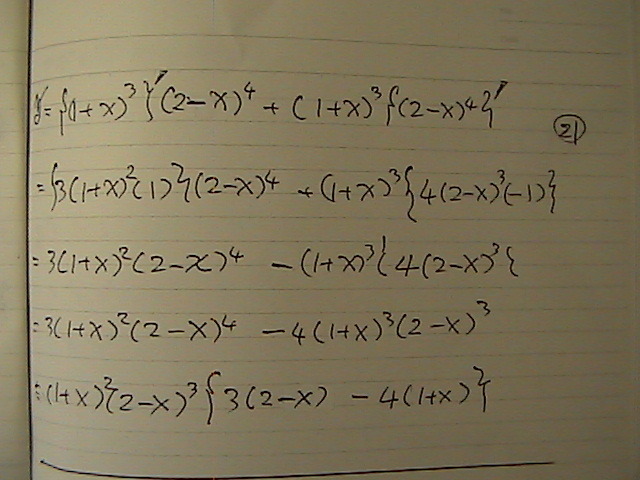 y'={(1+x)³}'(2-x)⁴+(1+x)³{(2-x)⁴}'
㉑
={3(1+x)²(1)}(2-x)⁴+(1+x)³{4(2-x)³(-1)}
=3(1+x)²(2-x)⁴-(1+x)³{4(2-x)³}
=3(1+x)²(2-x)⁴-4(1+x)³(2-x)³
=(1+x)²(2-x)³{3(2-x)-4(1+x)}